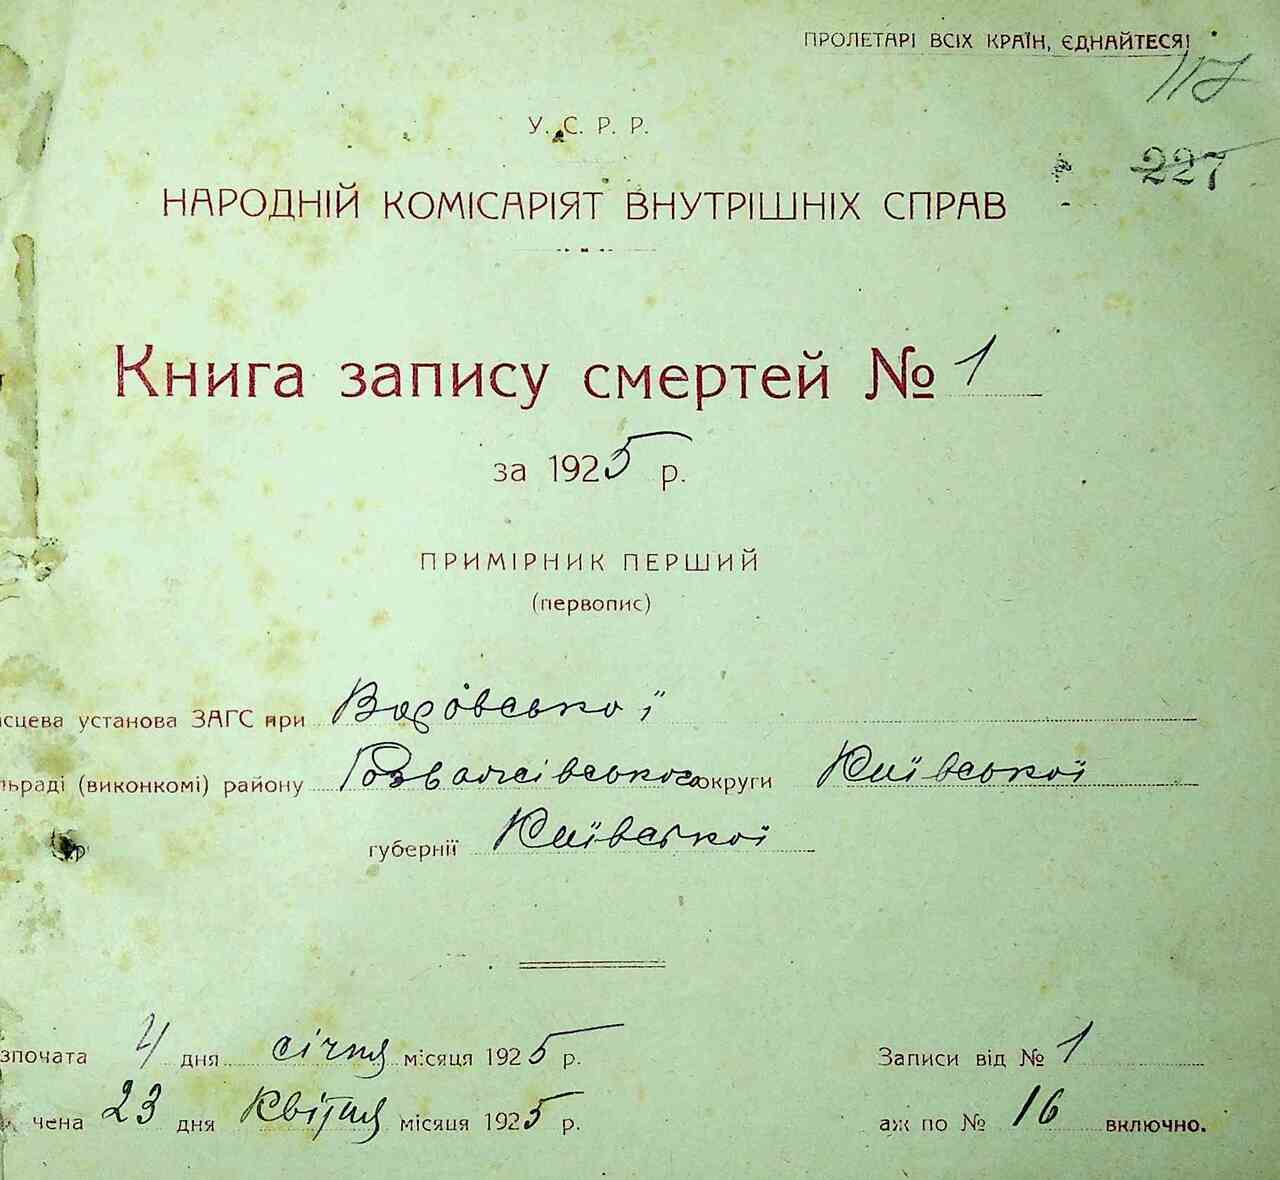 ПРОЛЕТАРІ ВСІХ КРАЇН, ЄДНАЙТЕСЯ!
117
227
У. С. Р. Р.
НАРОДНІЙ КОМІСАРІЯТ ВНУТРІШНІХ СПРАВ
Книга запису смертей № 1
за 1925 р.
ПРИМІРНИК ПЕРШИЙ
(первопис)
ісцева установа ЗАГС при
льраді (виконкомі) району Розважівського округи Київської
губернії Київської
зпочата 4 дня січня місяця 1925 р.
Записи від № 1
чена 23 дня квітня місяця 1925 р.
аж по № 16 включно.